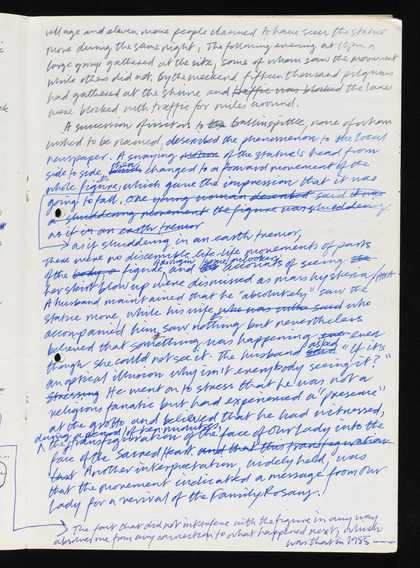 village and eleven more people claimed to have seen the statue
move during the same night. The following evening at 10pm a
large group gathered at the site, some of whom saw the movement
while others did not; by the weekend fifteen thousand pilgrims
had gathered at the shrine and traffic was blocked the lanes
were blocked with traffic for miles around.
A succession of visitors to the Ballinspittle, none of whom
wished to be named, described the phenomenon to the local
newspaper. A swaying motion of the statue's head from
side to side, then changed to a forward movement of the
whole figure, which gave the impression that it was
going to fall. One young woman described said it was
a shuddering movement the figure was shuddering
as if in an earth tremor
as if shuddering in an earth tremor,
There were no discernible life-like movements of parts
of the body figure, and accounts of seeing the
her skirt blow up were dismissed as mass hysteria
A husband maintained that he "absolutely" saw the
statue move, while his wife, who was also said who
accompanied him, saw nothing but nevertheless
believed that something was happening even
though she could not see it. The husband asked "If it's
an optical illusion why isn't everybody seeing it?"
Stressing He went on to stress that he was not a
religious fanatic but had experienced a "pressure"
at the grotto and believed that he had witnessed,
during a period of ten minutes,
the transfiguration of the face of Our Lady into the
face of the Sacred Heart. and that this transfiguration
Another interpretation, widely held, was
that the movement indicated a message from our
Lady for a revival of the Family Rosary.
The fact that did not interfere with the figure in any way
absolves me from any connection to what happened next, which
was that in 1985